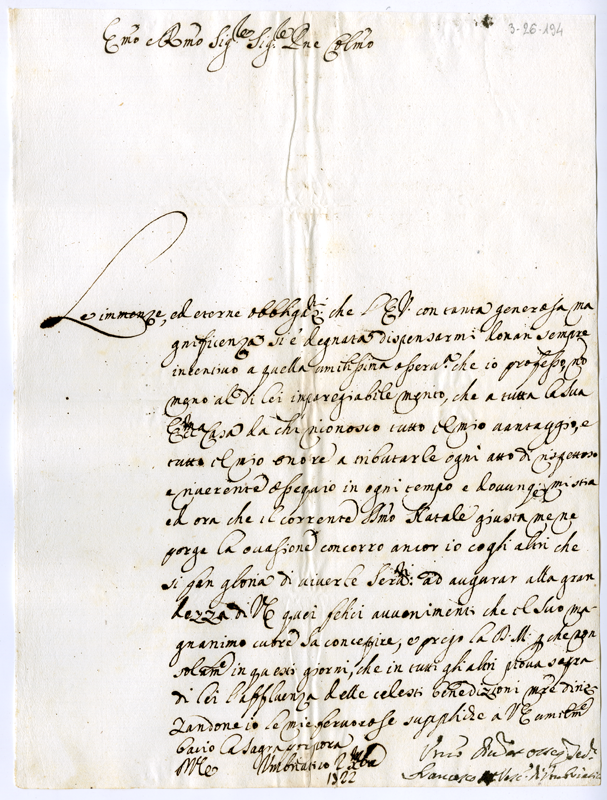 3-26-194
Emo e Rmo Sigre Sigre Pne Colmo
Le immenze, ed eterne obbligni che l'E.V. con tanta generosa ma
gnificenza si è degnata dispensarmi donan sempre
incentivo a quella umilissima osserva che io professo, no
meno al di lei impareggiabile merito, che a tutta la sua
Casa da chi riconosco tutto il mio vantaggio, e
tutto il mio onore a tributarle ogni atto di rispettoso
e riverente ossequio in ogni tempo e dovunqe mi stia
ed ora che il corrente Smo Natale giusta me ne
porge la occasione concorro ancor io cogli altri che
si fan gloria di viverle ad augurar alla gran
dezza di VE quei felici avvenimenti che il suo ma
gnanimo cuore sa concepire, e prego la che non
solame in questi giorni, che in tutti gli altri piova sopra
di lei l'affluenza delle celesti benedizioni mere diriz
zandone io le mie fervorose suppliche a VE umilme
bacio la sagra porpora
Umbriatico
Francesco Vesc. di Umbriatico